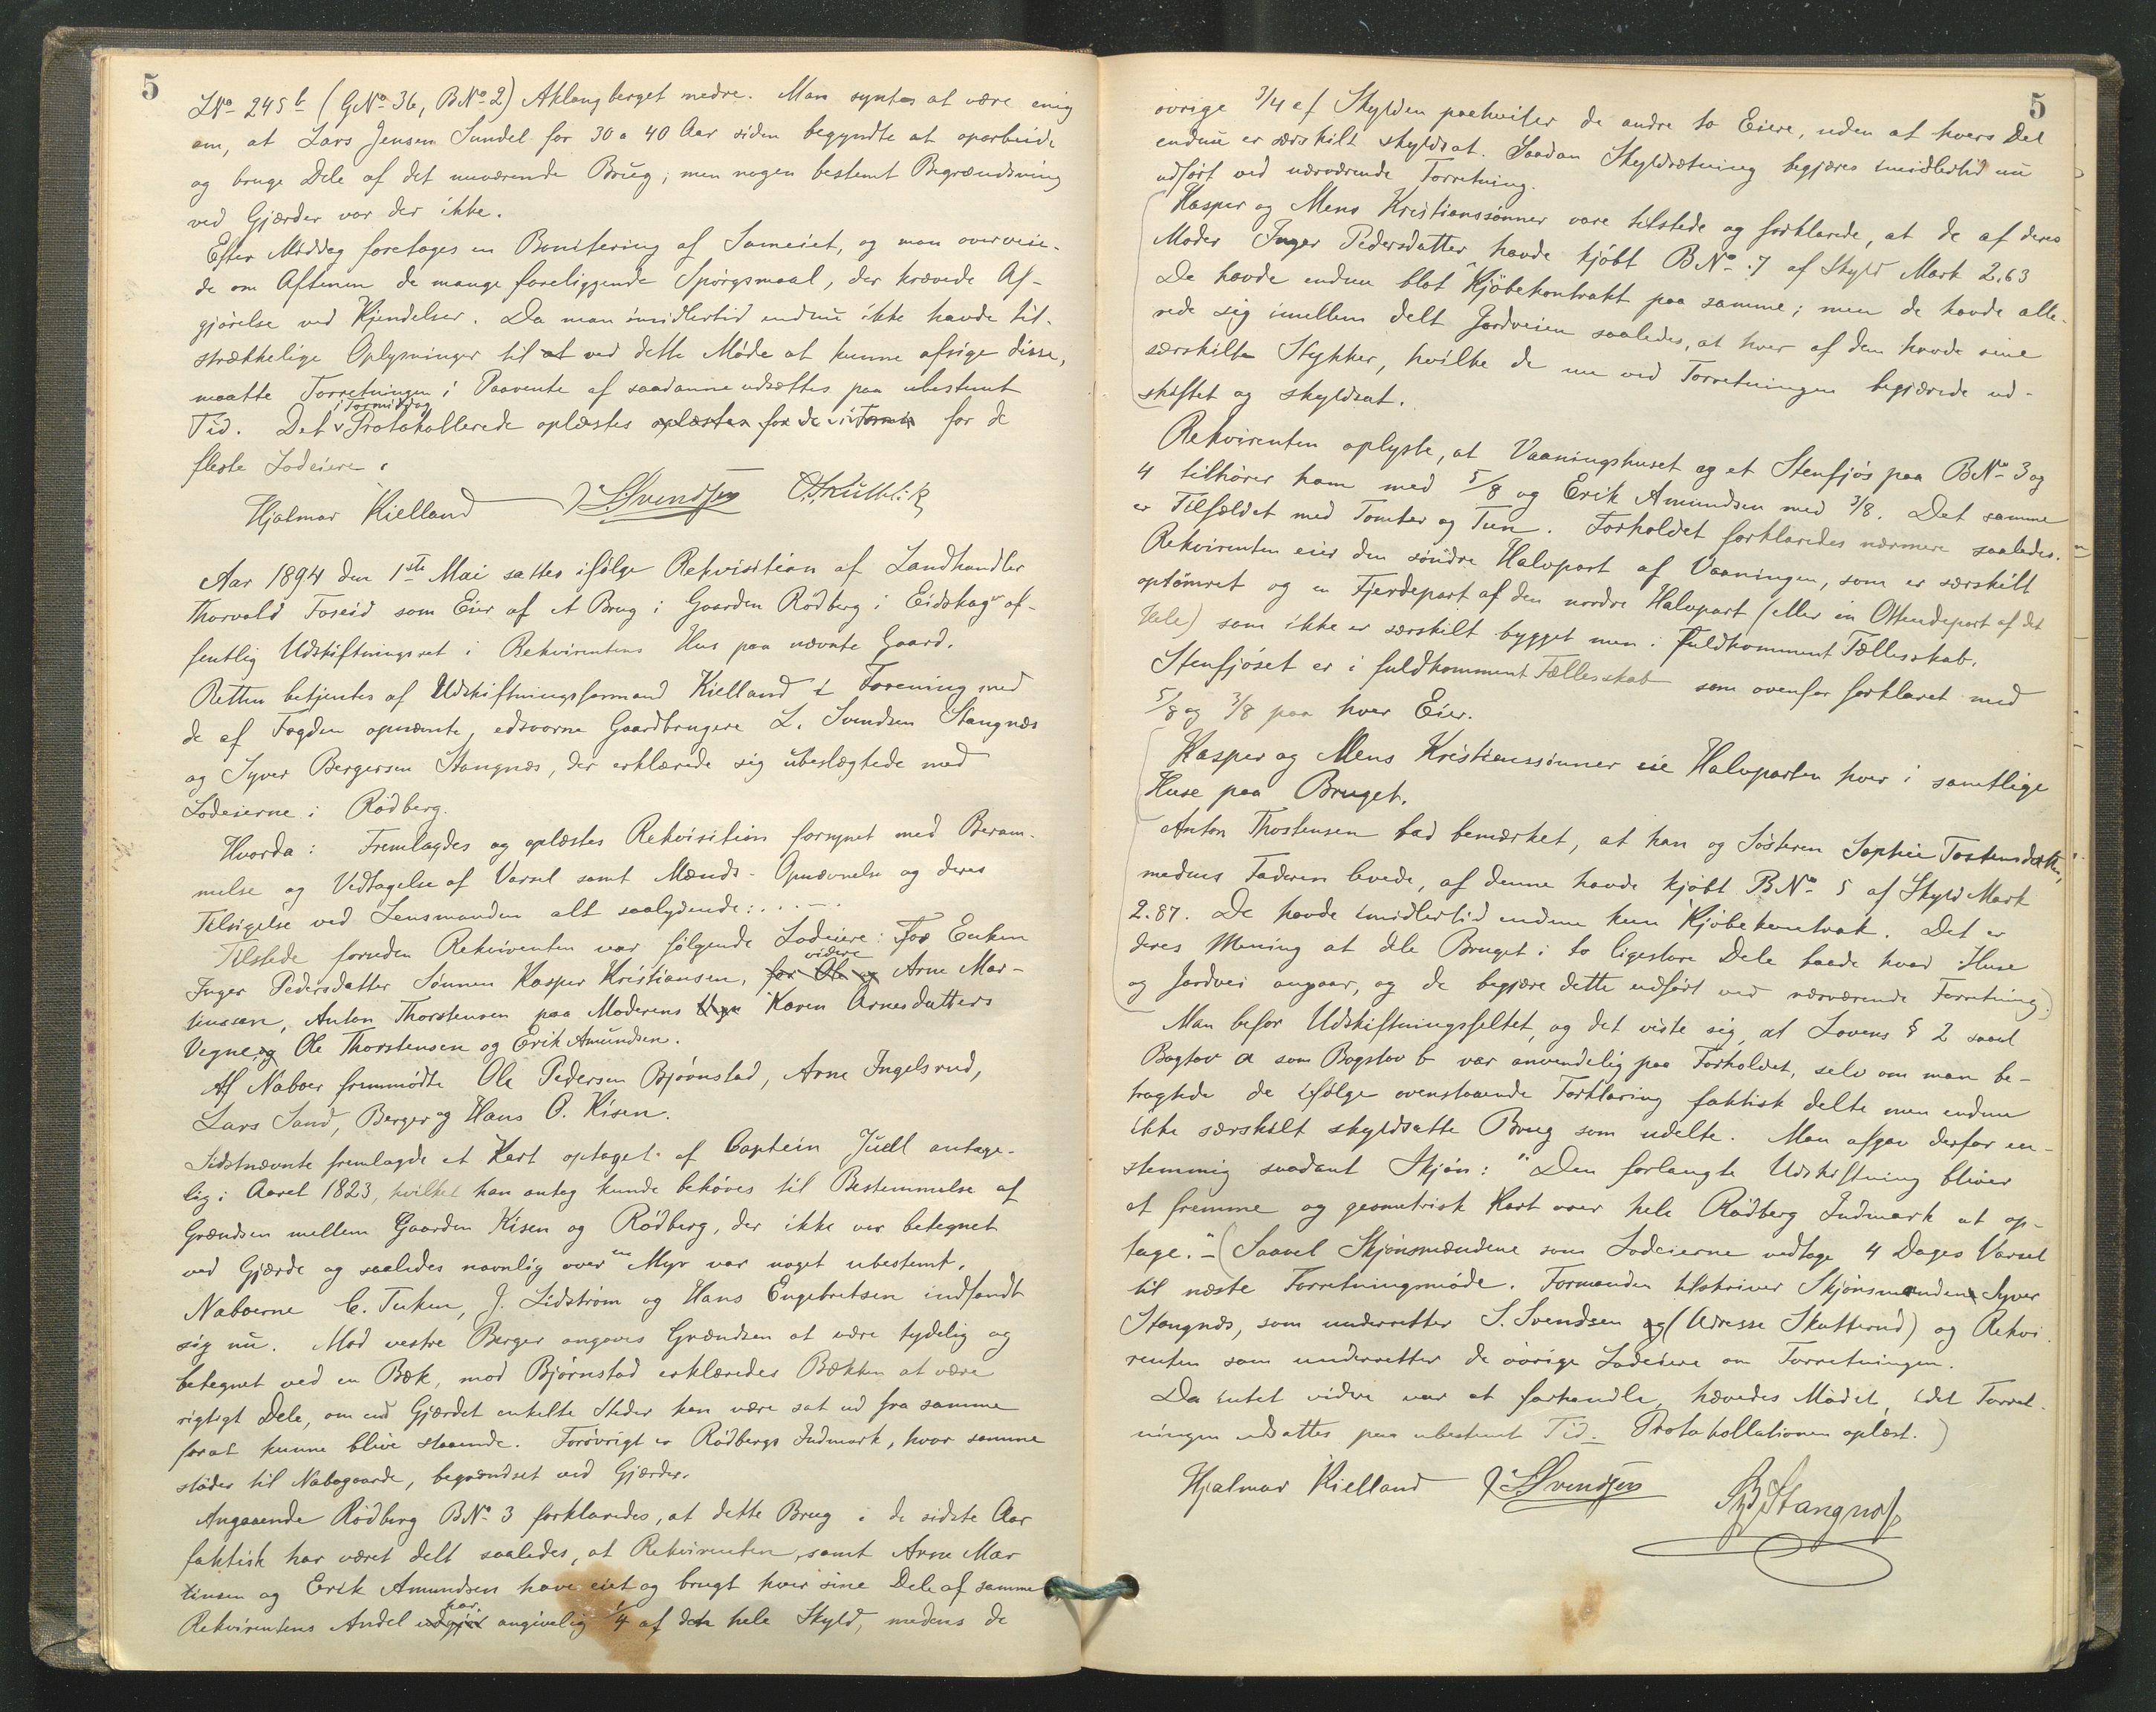 5
LNo 245b (GNo 36, BNo 2) Aklangberget nedre. Man syntes at være enig
om, at Lars Jensen Sundel for 30 a 40 Aar siden begyndte at oparbeide
og bruge Dele af det nuværende Brug; men nogen bestemt Begrændsning
ved Gjærder var der ikke.
Efter Middag foretoges en Bonitering af Sameiet, og man overveie-
de om Aftenen de mange foreliggende Spörgsmaal, der krævede Af-
gjörelse ved Kjendelser. Da man imidlertid endnu ikke havde til-
strækkelige Oplysninger til at ved dette Möde at kunne afsige disse,
maatte Forretningen i Paavente af saadanne udsættes paa ubestemt
i Formiddag
Tid. Det Protokollerede oplæstes oplæstes for de i Form for de
fleste Lodeiere.
Hjalmar Kielland L. Svendsen
Aar 1894 den 1ste Mai sattes ifölge Rekvisition af Landhandler
Thorvald Foseid som Eier af et Brug i Gaarden Rödberg i Eidskog of-
fentlig Udskiftningsret i Rekvirentens Hus paa nævnte Gaard.
Retten betjentes af Udskiftningsformand Kielland i Forening med
de af Fogden opnævnte, edsvorne Gaardbrugere L. Svendsen Stangnæs
og Syver Bergersen Stangnæs, der erklærede sig ubeslægtede med
Lodeierne i Rödberg.
Hvorda: Fremlagdes og oplæstes Rekvisition forsynet med Beram-
melse og Vedtagelse af Varsel samt Mænds-Opnævnelse og deres
Tilsigelse ved Lensmanden alt saalydende: . . . — .
Tilstede foruden Rekvirenten var fölgende Lodeiere: For Enken
videre
Inger Pedersdatter Sönnen Kasper Kristiansen, for Ole og Arne Mar-
tinssen, Anton Thorstensen paa Moderens Vegn Karen Arnesdatters
Vegne, og Ole Thorstensen og Erik Amundsen.
Af Naboer fremmödte Ole Pedersen Björnstad, Arne Ingelsrud,
Lars Sand, Berger og Hans O. Kisen.
Sidstnævnte fremlagde et Kart optaget af Captein Juell antage-
lig i Aaret 1823, hvilket han antog kunde behöves til Bestemmelse af
Grændsen mellem Gaarden Kisen og Rödberg, der ikke var betegnet
ved Gjærde og saaledes navnlig over en Myr var noget ubestemt.
Naboerne C. Tuken, J. Lidström og Hans Engebretsen indfandt
sig nu. Mod vestre Berger angaves Grændsen at være tydelig og
betegnet ved en Bæk, mod Björnstad erklæredes Bækken at være
rigtigt Dele, om end Gjærdet enkelte Steder kan være sat ud fra samme
forat kunne blive staaende. Forövrigt er Rödbergs Indmark, hvor samme
stöder til Nabogaarde, begrændset ved Gjærder.
Angaaende Rödberg BNo 3 forklaredes, at dette Brug i de sidste Aar
faktisk har været delt saaledes, at Rekvirenten, samt Arne Mar
tinsen og Erik Amundsen have eiet og brugt hver sine Dele af samme
har
Rekvirentens Andel udgjör angivelig 1/4 af den hele Skyld, medens de
5
övrige 3/4 af Skylden paahviler de andre to Eiere, uden at hvers Del
endnu er særskilt skyldsat. Saadan Skyldsætning begjæres imidlertid nu
udfört ved nærværende Forretning.
Kasper og Mens Kristianssönner vare tilstede og forklarede, at de af deres
Moder Inger Pedersdatter havde kjöbt BNo 7 af Skyld Mark 2.63
De havde endnu blot Kjöbekontrakt paa samme; men de havde alle-
rede sig imellem delt Jordveien saaledes, at hver af dem havde sine
særskilte Stykker, hvilke de nu ved Forretningen begjærede ud-
skiftet og skyldsat.
Rekvirenten oplyste, at Vaaningshuset og et Stenfjös paa BNo 3 og
4 tilhörer ham med 5/8 og Erik Amundsen med 3/8. Det samme
er Tilfældet med Tomter og Tun. Forholdet forklaredes nærmere saaledes:
Rekvirenten eier den söndre Halvpart af Vaaningen, som er særskilt
optömret og en Fjerdepart af den nordre Halvpart (eller en Ottendepart af det
Hele) som ikke er særskilt bygget men i fuldkomment Fællesskab.
Stenfjöset er i fuldkomment Fællesskab som ovenfor forklaret med
5/8 og 3/8 paa hver Eier.
Kasper og Mens Kristianssönner eie Halvparten hver i samtlige
Huse paa Bruget.
Anton Thostensen bad bemærket, at han og Sösteren Sophie Tostensdatter,
medens Faderen levede, af denne havde kjöbt BNo 5 af Skyld Mark
2.87. De havde imidlertid endnu kun Kjöbekontrak. Det er
deres Mening at dele Bruget i to ligestore Dele baade hvad Huse
og Jordvei angaar, og de begjære dette udfört ved nærværende Forretning.)
Man befor Udskiftningsfeltet, og det viste sig, at Lovens § 2 saavel
Bogtav a som Bogstav b var anvendelig paa Forholdet, selv om man be-
tragtede de ifölge ovenstaaende Forklaring faktisk delte men endnu
ikke særskilt skyldsatte Brug som udelte. Man afgav derfor en-
stemmig saadant Skjön: "Den forlangte Udskiftning bliver
at fremme og geometrisk Kart over hele Rödberg Indmark at op-
tage." – (Saavel Skjönsmændene som Lodeierne vedtage 4 Dages Varsel
til næste Forretningsmöde. Formanden tilskriver Skjönsmanden Syver
Stangnæs, som underretter S. Svendsen og (Adresse Skotterud) og Rekvi
renten som underretter de övrige Lodeiere om Forretningen.
Da intet videre var at forhandle, hævedes Mödet, idet Forret-
ningen udsattes paa ubestemt Tid. – Protokollationen oplæst. )
Hjalmar Kielland L. Svendsen S. B. Stangnæs